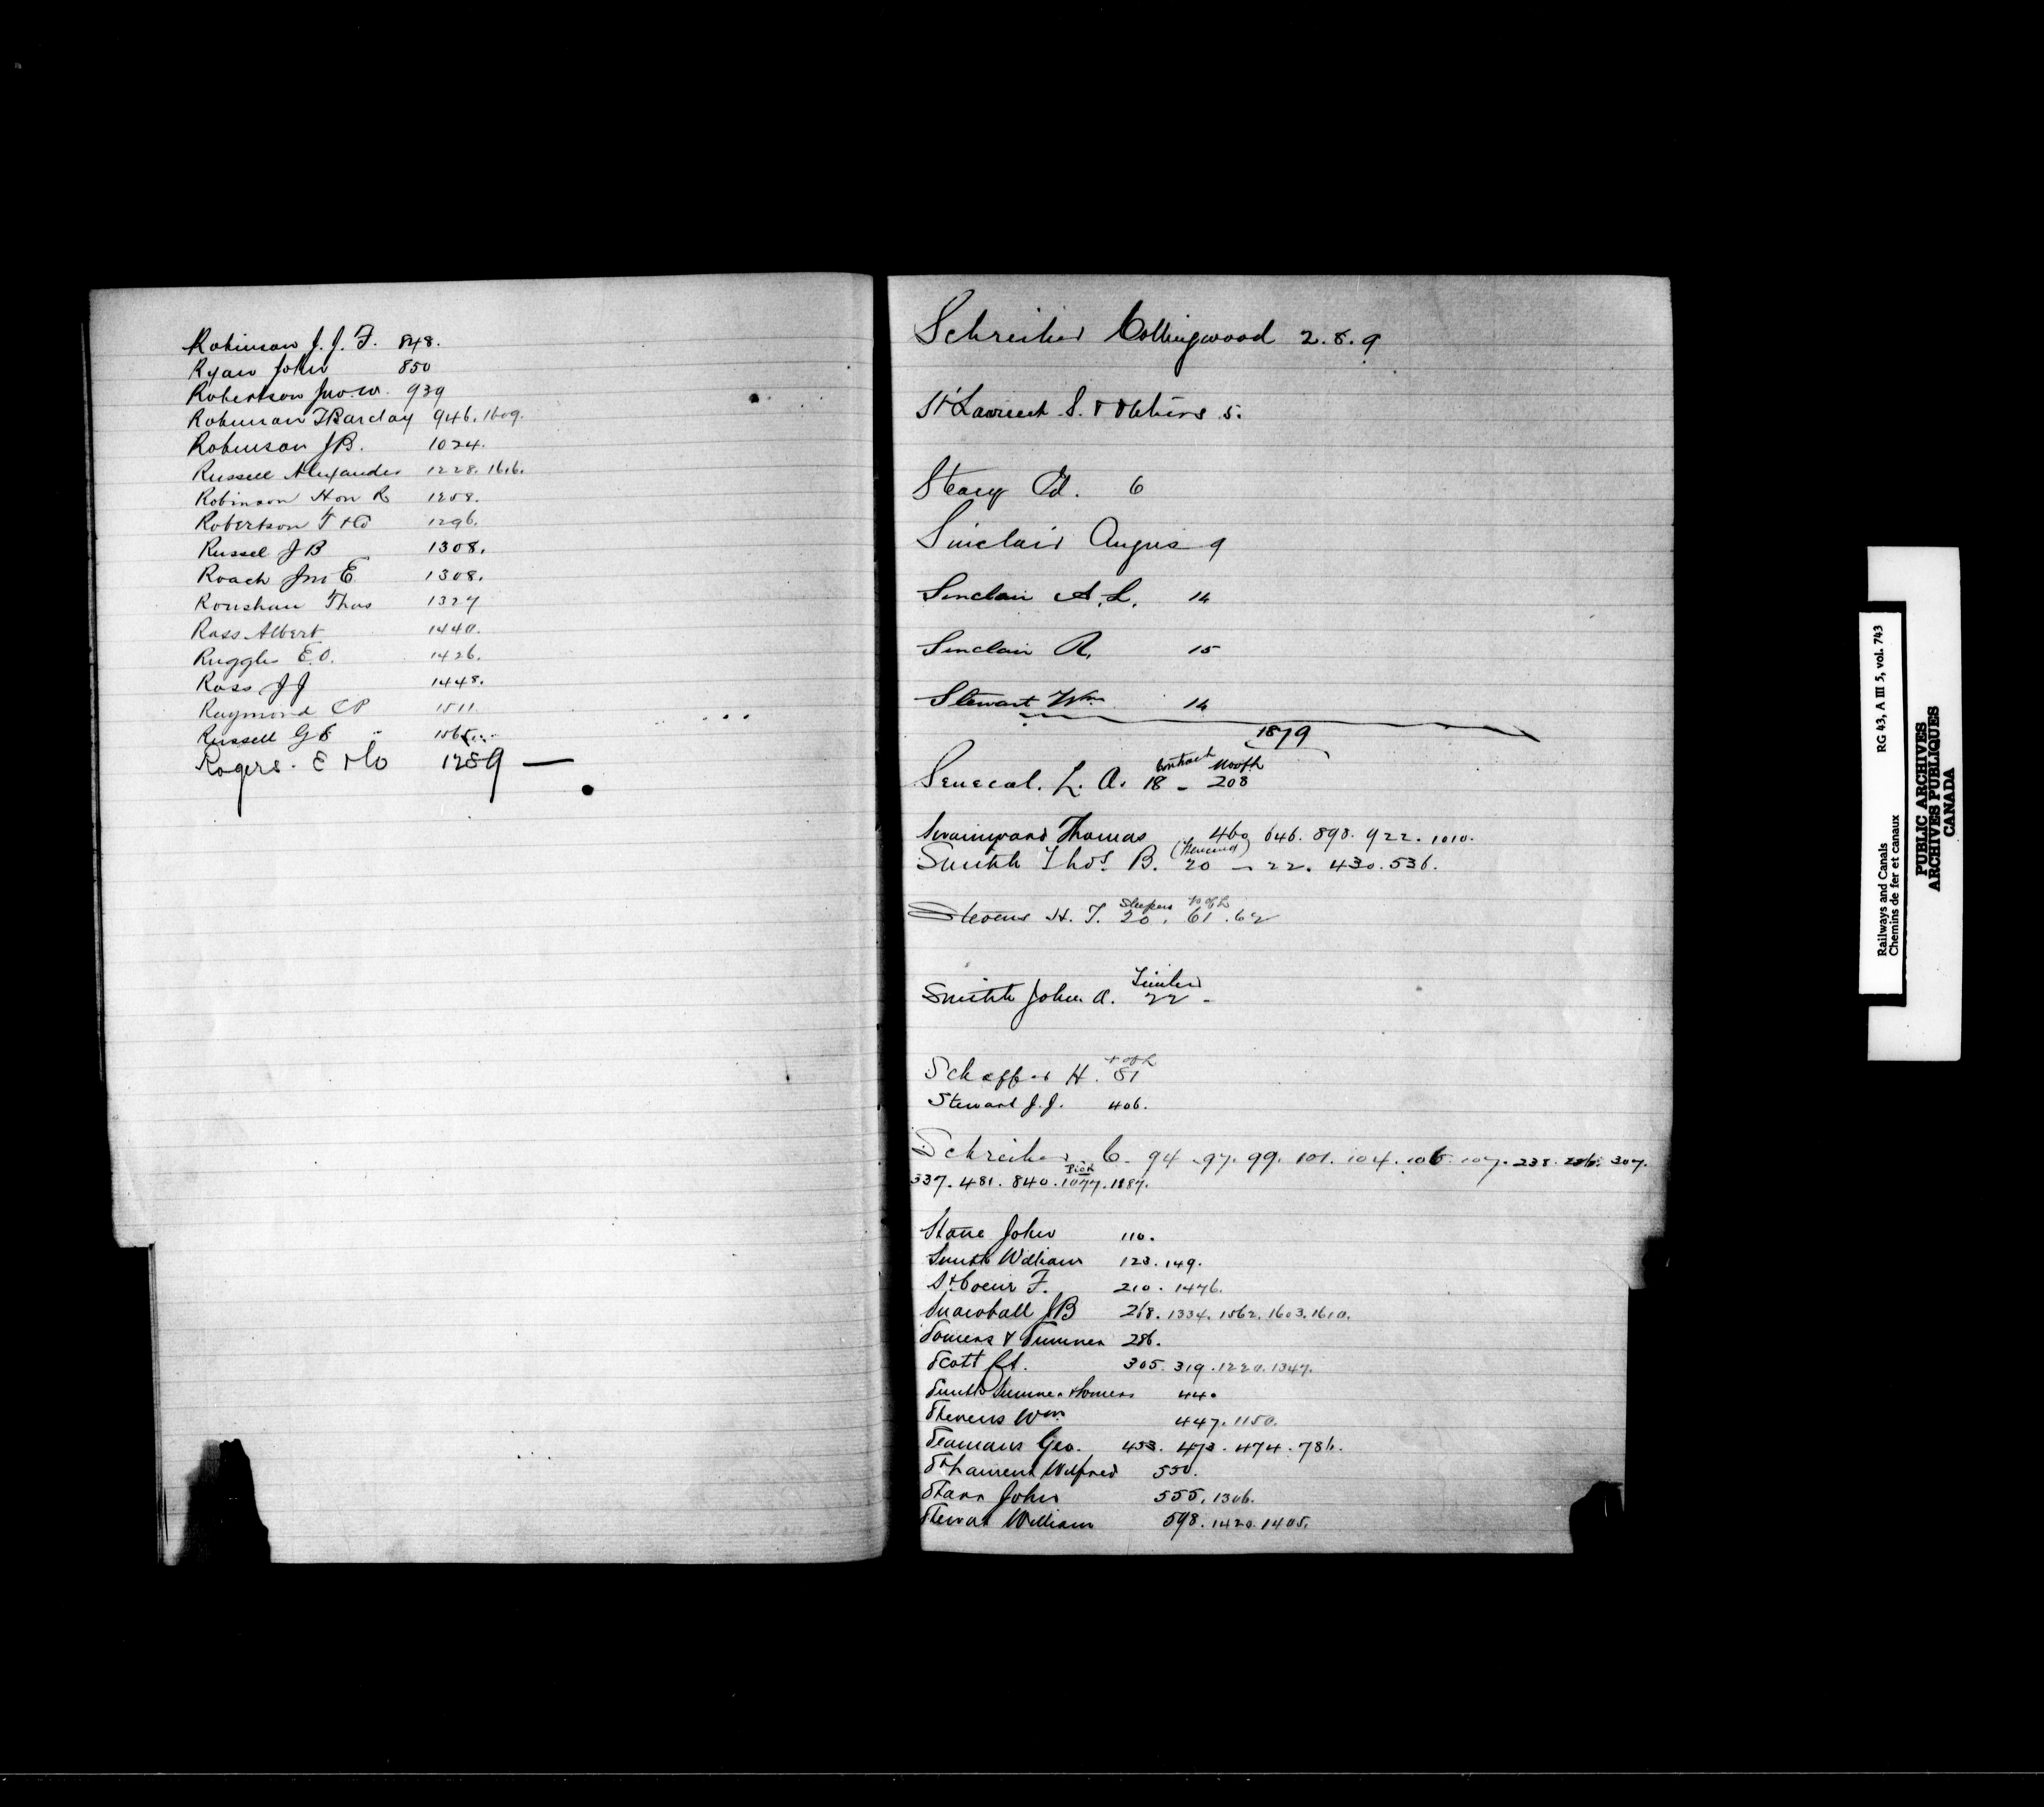 Robinson J. J. F. 848.
Ryan John 850
Robertson Jno. W. 939
Robinson T Barclay 946. 1609.
Robinson J B. 1024.
Russell Alexander 1228. 1616.
Robinson Hon R 1258.
Robertson T & Co 1296.
Russel J B 1308.
Roach Jno E 1308.
Ronshan Thos 1327
Ross Albert 1440.
Ruggles E. O. 1426.
Ross J J 1448.
Raymond C P 1511.
Russell G E 1565
Rogers. E & Co 1289 —
Schreiber Collingwood 2. 8. 9
St Laurent S. & others 5.
Steacy Ed. 6
Sinclair Angus 9
Sinclair A. L. 14
Sinclair R. 15
Stewart Wm 14
1879
Contract
Senecal. L. A. 18 - 208
Swainyard Thomas 460 646. 898. 922. 1010.
(Fencing)
Smith Thos. B. 20 - 22. 430. 536.
Sleepers
Stevens H. T. 20. 61. 62
Timber
Smith John A. 22 -
Schaffer H. 81
Stewart J. J. 406.
Schreiber C. 94. 97. 99. 101. 104. 106. 107. 238. 286. 307.
337. 481. 840. 1077. 1187.
Stone John 110.
Smith William 123. 149.
St Coeur F. 210. 1476.
Snowball J B 268. 1334. 1562. 1603. 1610.
Somers & Sumner 286.
Scott Rt. 305. 319. 1220. 1347.
Smith Sumner & Somers 440
Stevens Wm 447. 1150.
Seamans Geo. 453. 473. 474. 786.
St Laurent Wilfred 550.
Starr John 555. 1306.
Stewart William 598. 1420. 1405.
Railways and Canals RG 43, A III 5, vol. 743
Chemins de fer et canaux
PUBLIC ARCHIVES
ARCHIVES PUBLIQUES
CANADA